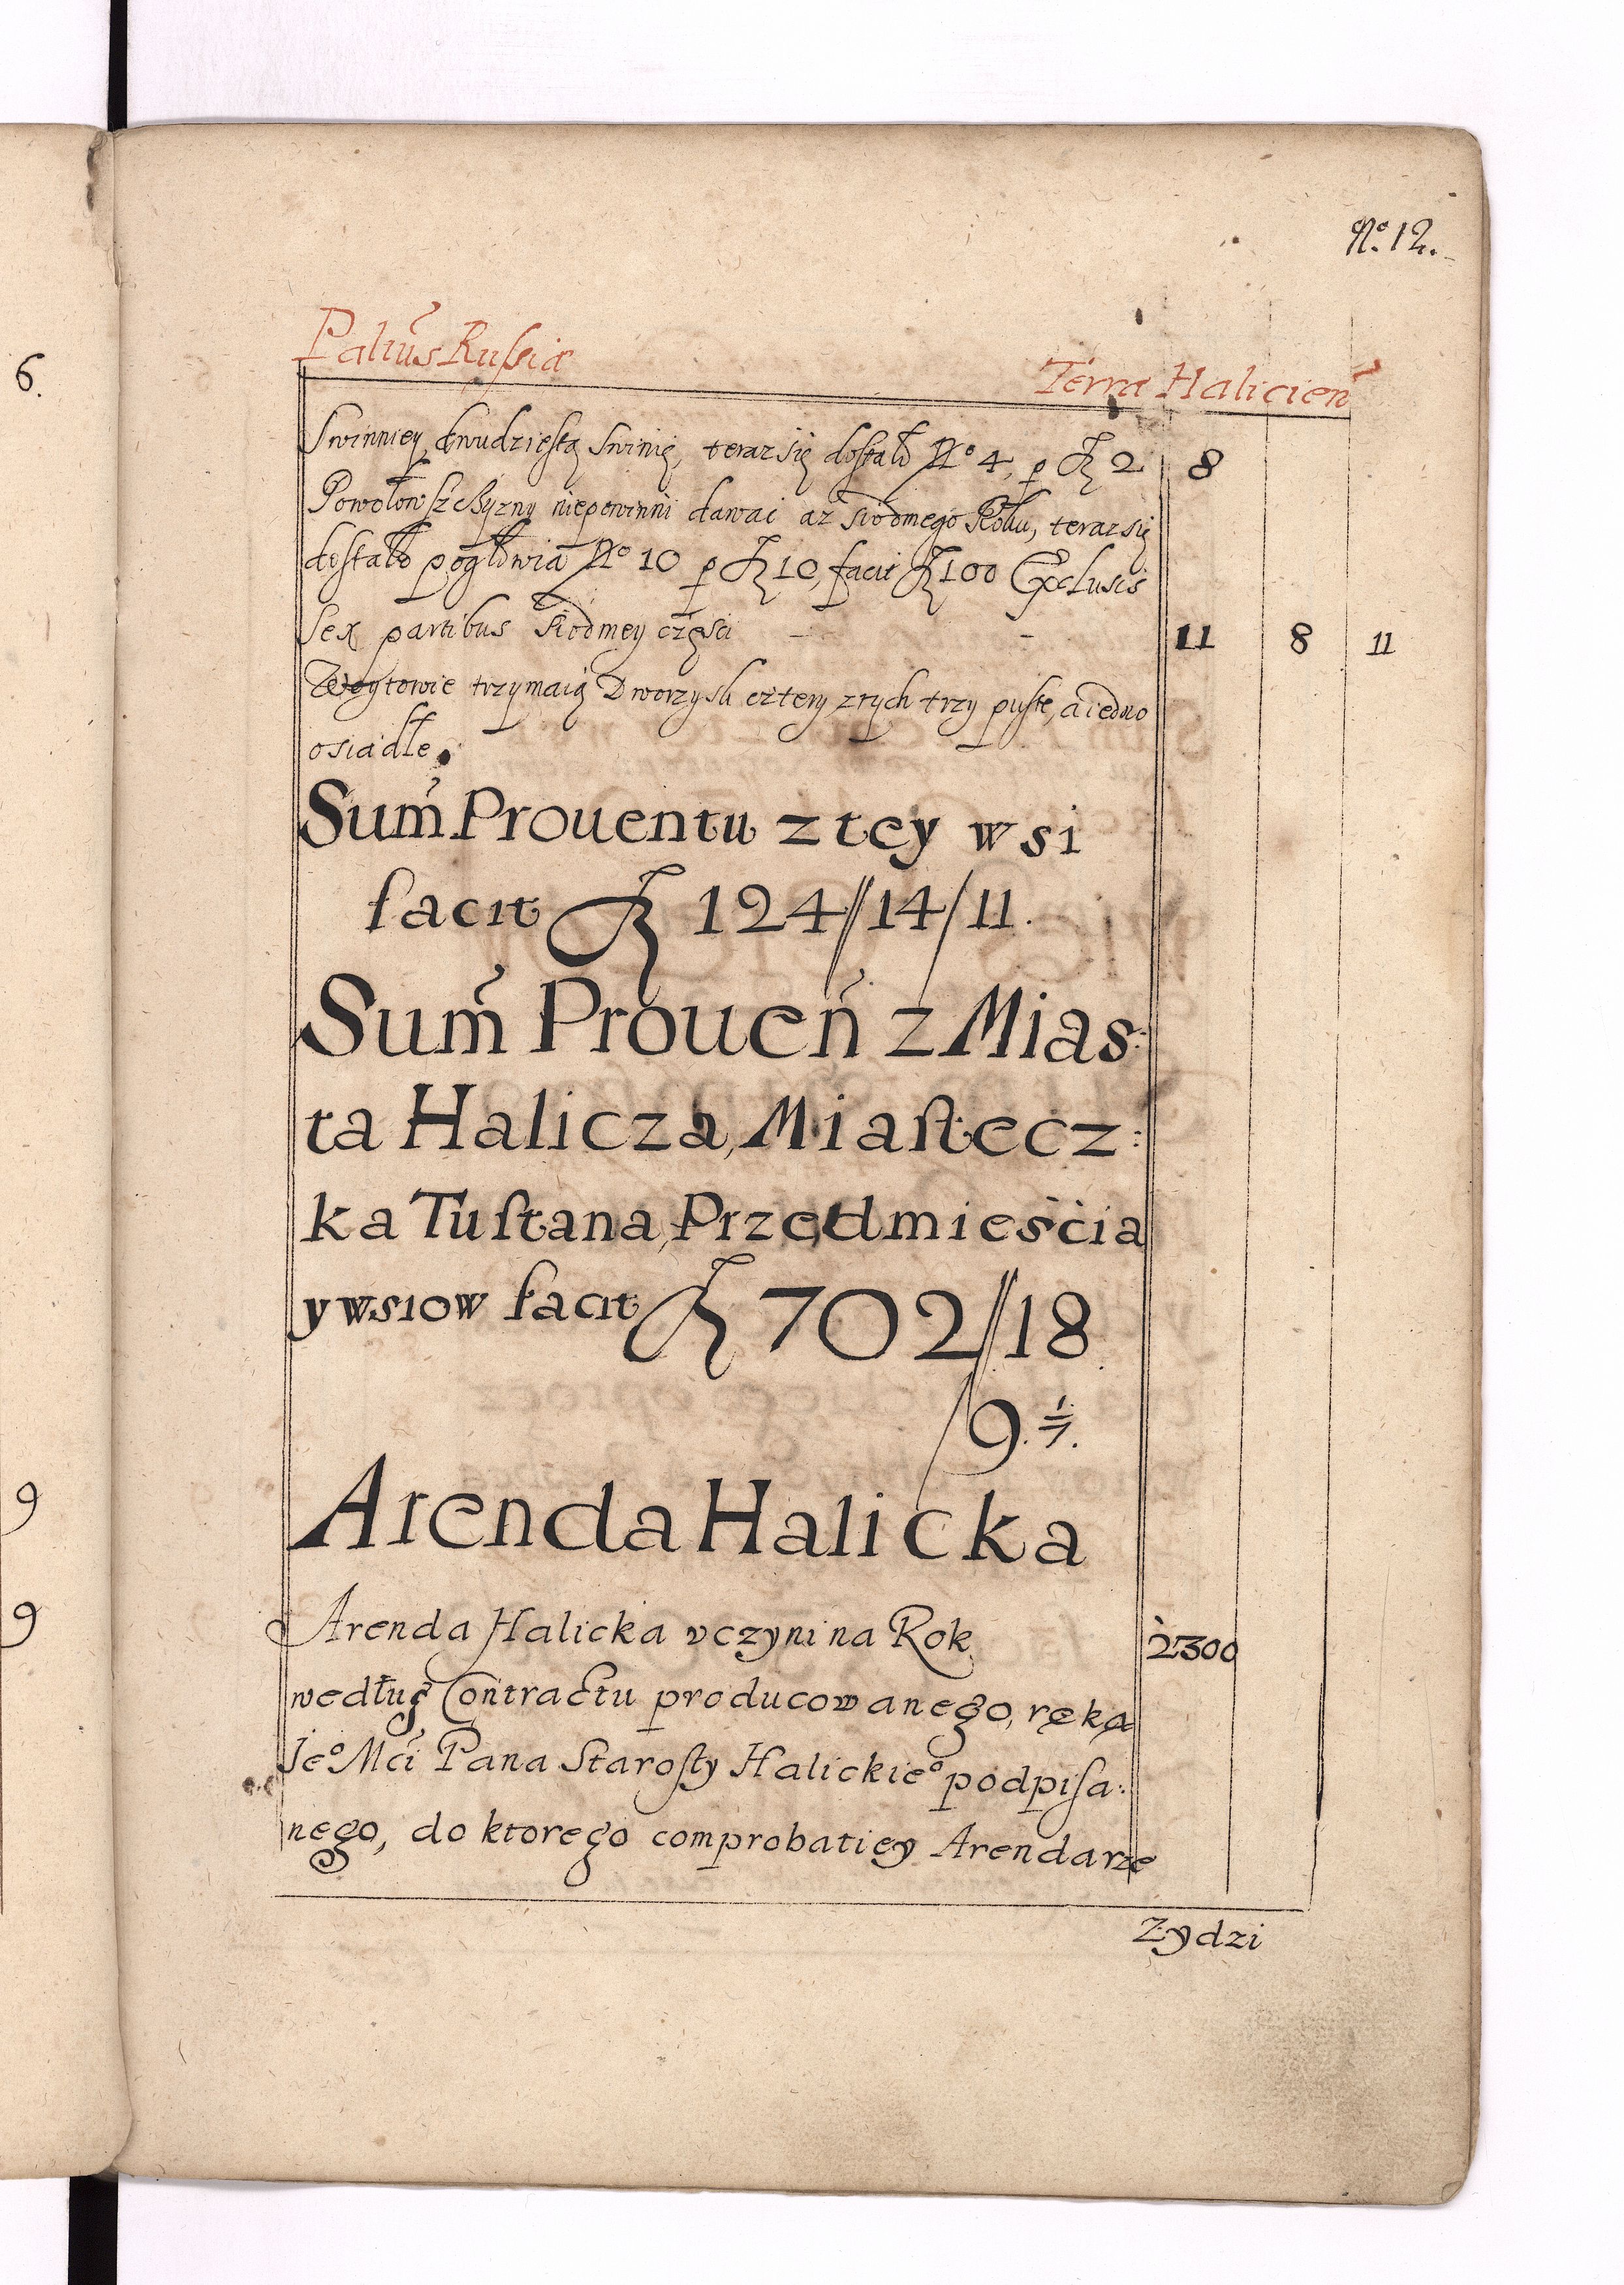 No. 12.
Palius Russiæ
Terra Halicien
Swinniey dwudziestą Swinię, teraz się dostało No 4, p fl 2 8
Powołowszczyzny niepowinni dawać aż siodmego Roku, teraz się
dostało pogłowia No 10 p fl 10, facit fl 100 Exclusis
sex partibus siodmey części - - 11 8 11
Woytowie trzymaią Dworzysk cztery z tych trzy puste, a iedno
osiadłe.
Sum Prouentu z tey wsi
facit fl 124//14/11.
Sum Prouen z Mias:
ta Halicza, Miastecz:
ka Tustana, Przedmieścia
y wsiow facit fl 702//18
/9. 1/7.
Arenda Halicka
Arenda Halicka vczyni na Rok 2300
według Contractu producowanego, ręką
Jeo Mci Pana Starosty Halickieo podpisa:
nego, do ktorego comprobatiey Arendarze
Zydzi
6.
9
9